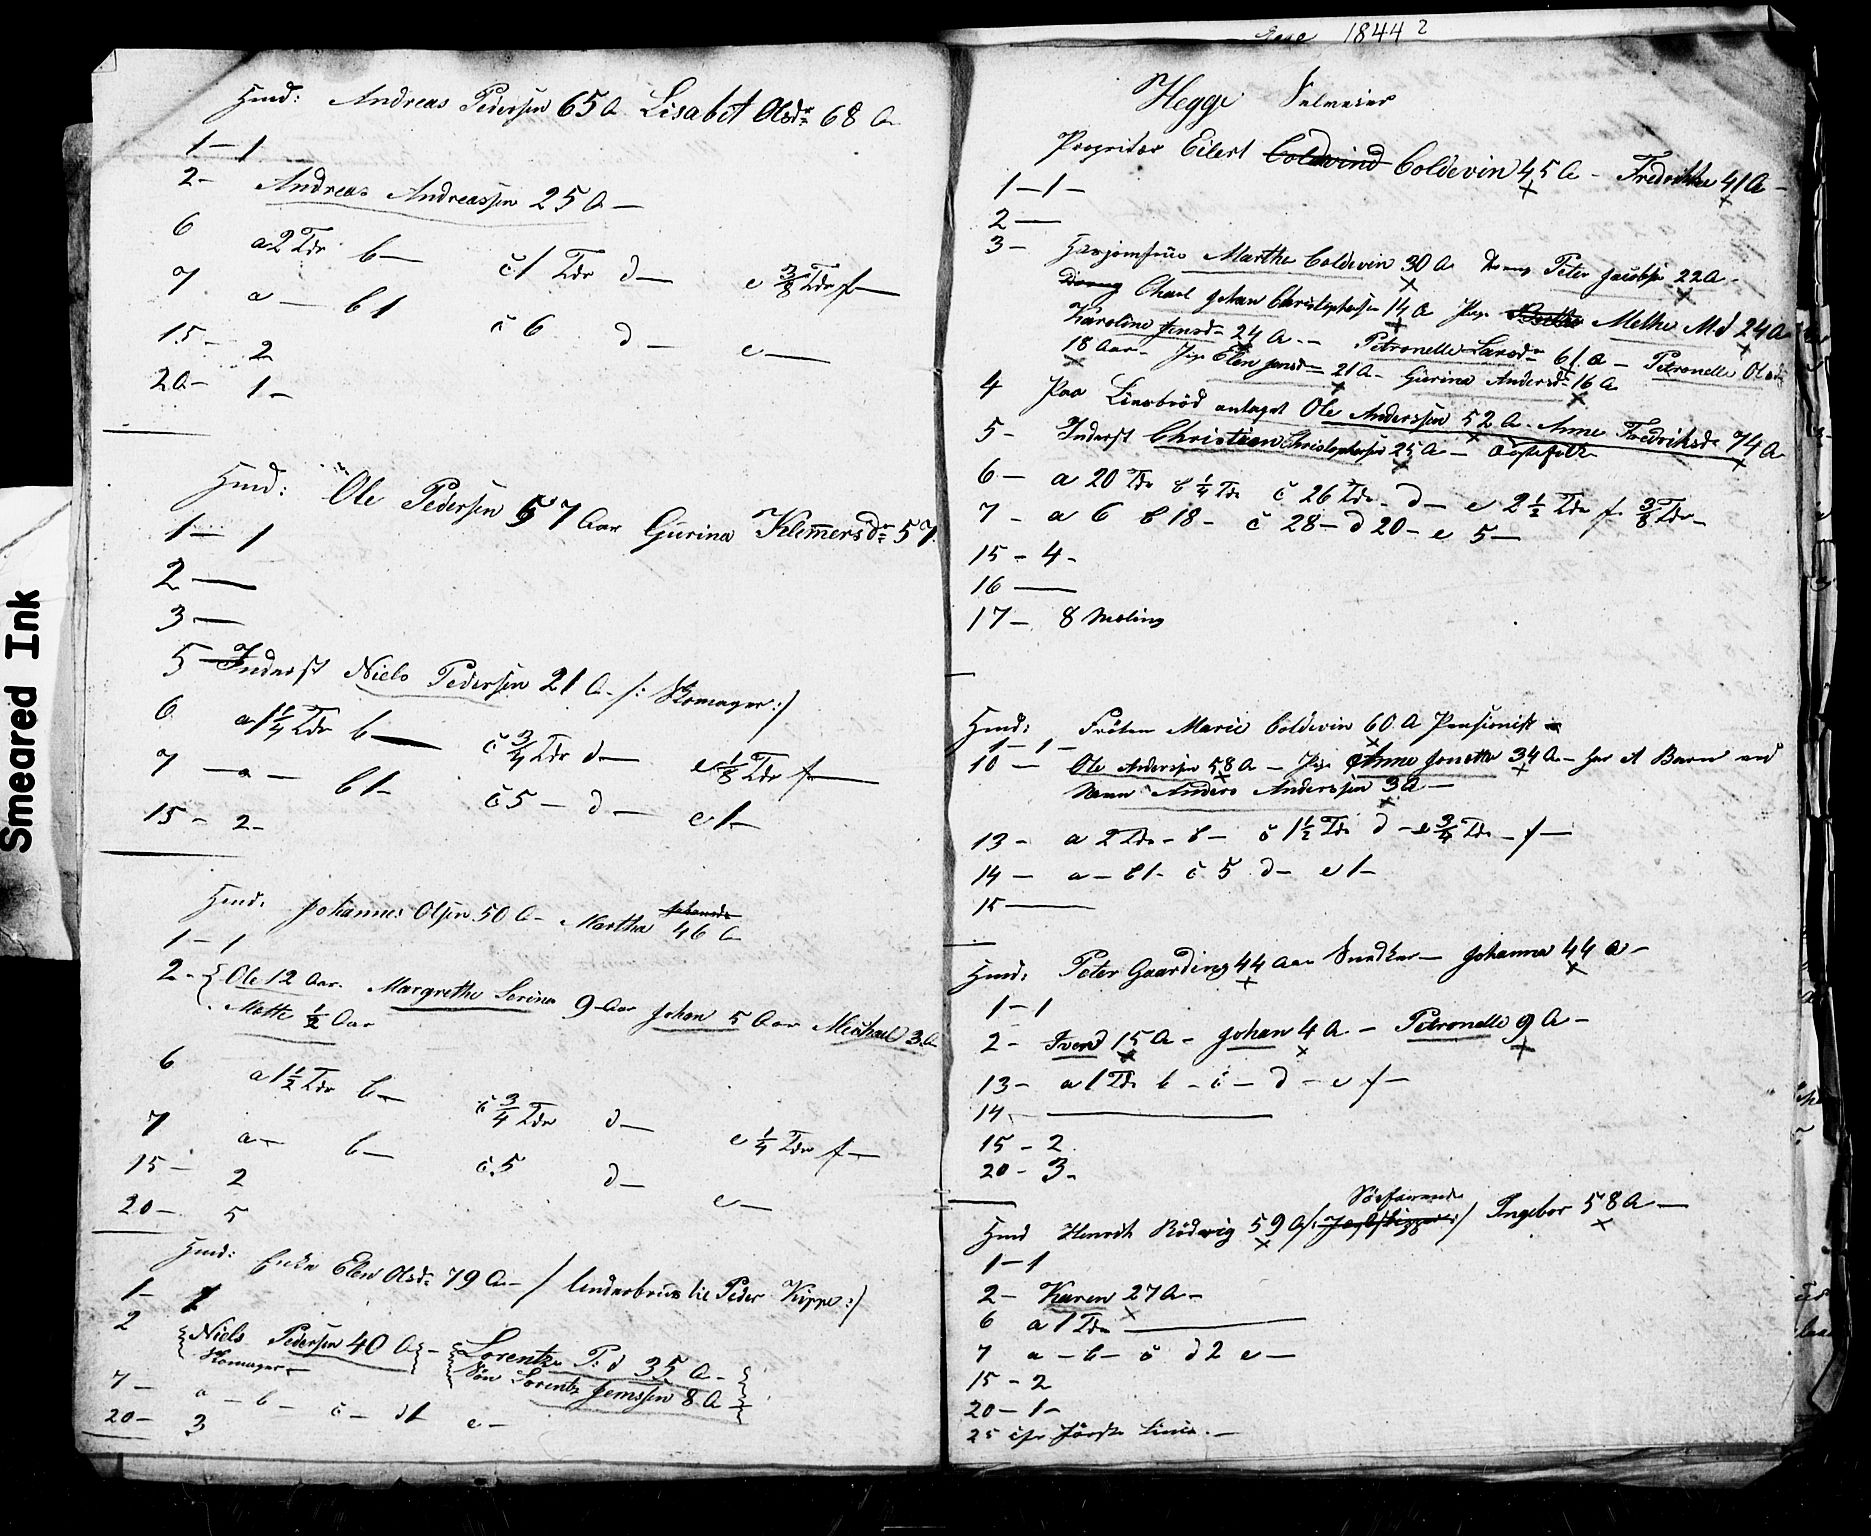 Hmd: Andreas Pedersen 65 A Lisabet Olsdr 68 A
1 – 1
2 – Andreas Andreassen 25 A –
6 a 2 Tdr b – c 1 Tdr d – e 3/8 Tdr f –
7 a – b 1 c 6 d – e –
15 – 2
20 – 1 –
Hmd: Ole Pedersen 57 Aar Gurina Klemmersdr 57
1 – 1
2 –
3 –
5 – Inderst Niels Pedersen 21 A – /: Skomager :/
6 a 1 1/4 Tdr b – c 3/4 Tdr d – e 1/8 Tdr f –
7 – a – b 1 – c 5 – d – e 1 –
15 – 2 –
Hmd. Johannes Olsen 50 A – Martha 46 A
1 – 1
2 – Ole 12 Aar. Margrethe Serine 9 Aar Johan 5 Aar Michael 3 A
Mette 1/2 Aar
6 a 1 1/2 Tdr b – c 3/4 Tdr d – e 1/4 Tdr f –
7 a – b – c 5 d – e –
15 – 2
20 – 5
Hmd: Enke Elen Olsdr 79 A – / Underbrug til Peder Kippe :/
1 – 1
2 Niels Pedersen 40 A – Lorentze P: d 35 A –
Skomager – Søn Lorentz Jenssen 8 A –
7 – a – b – c – d 1 e –
20 – 3
1844 2
Hegge
Proprietær Eilert Coldevind Coldevin 45 A – Fredrikke 41 A –
1 – 1 –
2 –
3 – Huusjomfrue Marthe Coldevin 30 A Dreng Peter Jacobsen 22 A –
Dreng Charl Johan Christophersen 14 A Pige Methe M.d 24 A
Karoline Jensdr 24 A – Petronelle Larsdr 61 A – Petronelle Olsd
18 Aar – Pige Elen Jensdr 21 A – Gurina Andersdr 16 A
4 Paa Livsbrød antaget Ole Anderssen 52 A. Anne Fredriksdr 74 A
5 – Inderst Christian Christophersen 25 A –
6 – a 20 Tdr b 1/4 Tdr c 26 Tdr d – e 2 1/2 Tdr f 3/8 Tdr –
7 – a 6 b 18 – c 28 – d 20 – e 5 –
15 – 4 –
16 –
17 – 8
Hmd: Frøken Marie Coldevin 60 A Pensionist
1 – 1 –
10 – Ole Anderssen 58 A – Pige Anne Jonette 34 A – har et Barn ved
Navn Anders Anderssen 3 A –
13 – a 2 Tdr – b – c 1 1/2 Tdr d – e 3/4 Tdr – f –
14 – a – b 1 – c 5 d – e 1 –
15 –
Hmd: Peter Gaarding 44 Aar Snedker – Johanna 44 A –
1 – 1
2 – Iverd 15 A – Johan 4 A – Petronelle 9 A –
13 – a 1 Tdr b – c – d – e f –
14 –
15 – 2
20 – 3 –
Søefarende
Hmd Henrik Rödwig 59 A /: Jagtskipper :/ Ingebor 58 A –
1 – 1
2 – Karen 27 A –
6 a 1 Tdr –
7 a – b – c d 2 e –
15 – 2
20 – 1 –
25 cfr første Linie. –
Smeared Ink